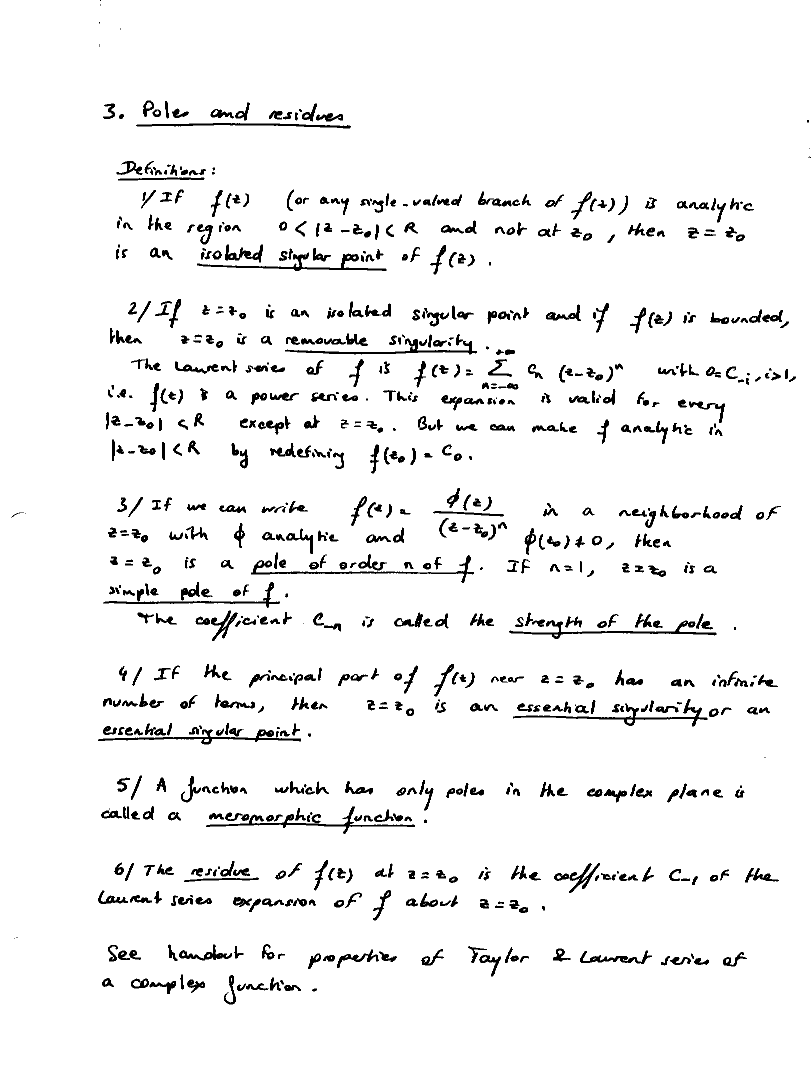 3. Poles and residues
Definitions:
1/ If f(z) (or any single-valued branch of f(z)) is analytic
in the region 0 < |z - z₀| < R and not at z₀, then z = z₀
is an isolated singular point of f(z).
2/ If z = z₀ is an isolated singular point and if f(z) is bounded,
then z = z₀ is a removable singularity.
The Laurent series of f is f(z) = Σ_{n=-∞}^{+∞} Cₙ (z-z₀)ⁿ with 0 = C₋ᵢ, i>1,
i.e. f(z) is a power series. This expansion is valid for every
|z-z₀| < R except at z = z₀. But we can make f analytic in
|z-z₀| < R by redefining f(z₀) = C₀.
3/ If we can write f(z) = φ(z)/(z-z₀)ⁿ in a neighborhood of
z=z₀ with φ analytic and φ(z₀) ≠ 0, then
z = z₀ is a pole of order n of f. If n=1, z=z₀ is a
simple pole of f.
The coefficient C₋ₙ is called the strength of the pole.
4/ If the principal part of f(z) near z = z₀ has an infinite
number of terms, then z = z₀ is an essential singularity or an
essential singular point.
5/ A function which has only poles in the complex plane is
called a meromorphic function.
6/ The residue of f(z) at z=z₀ is the coefficient C₋₁ of the
Laurent series expansion of f about z=z₀.
See handout for properties of Taylor & Laurent series of
a complex function.